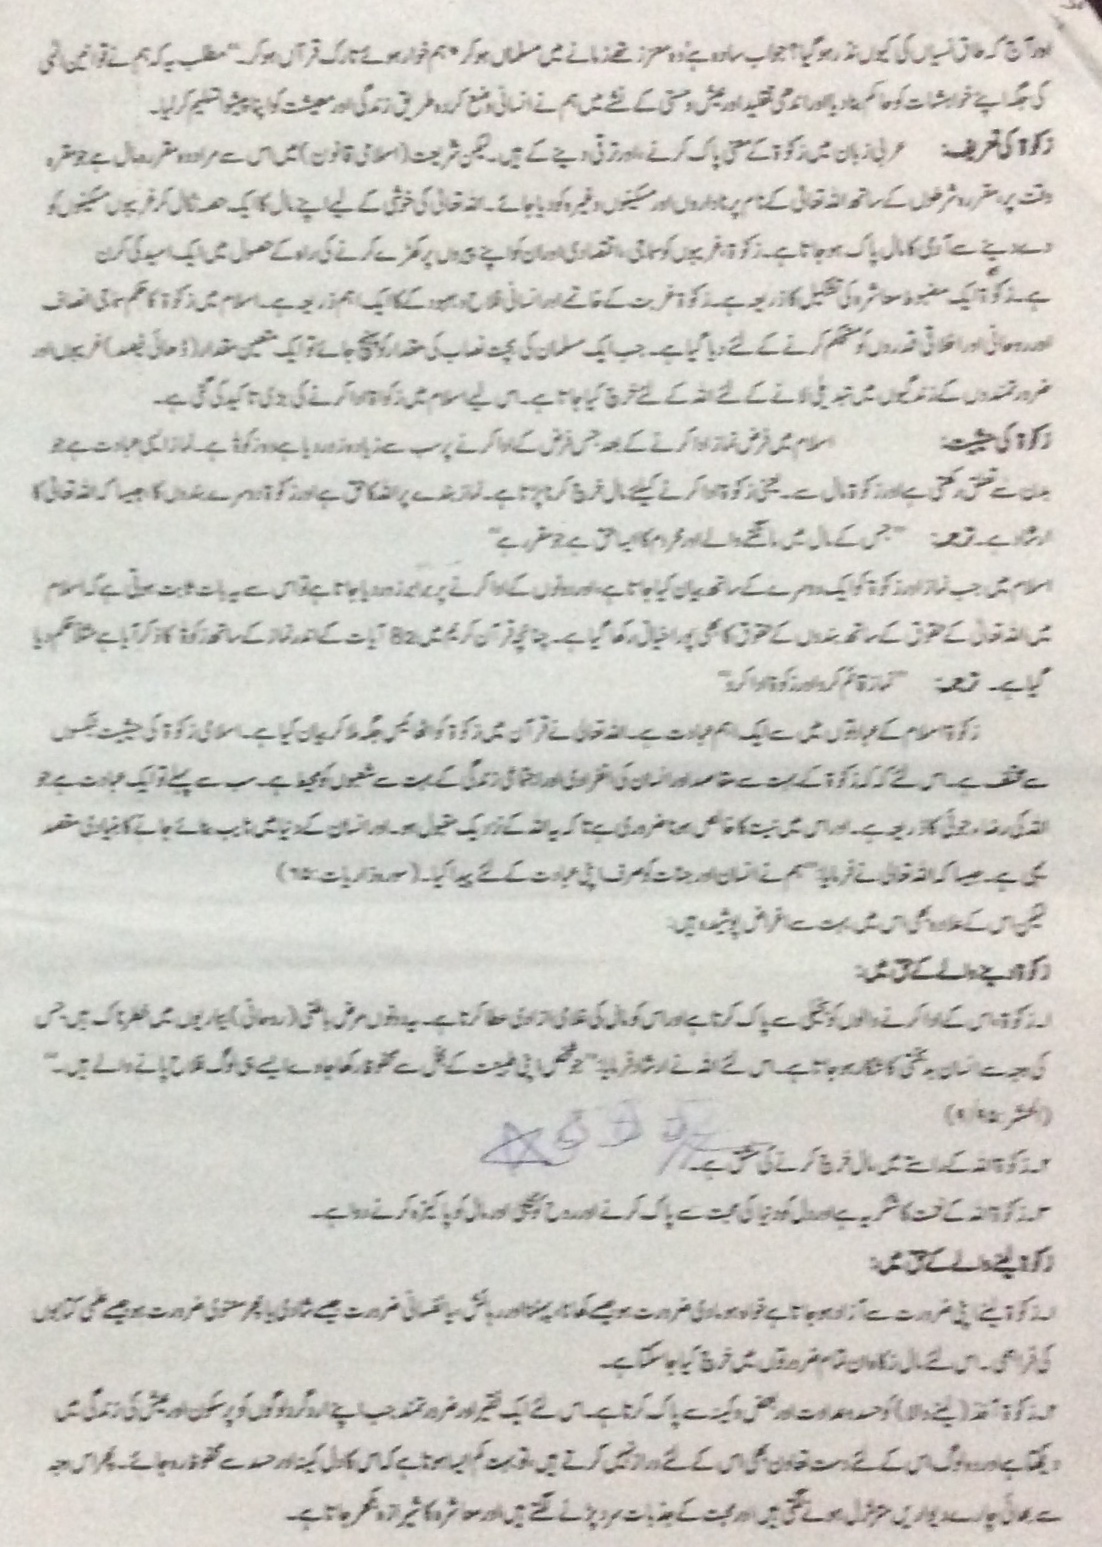 اور آج کہ طاق نسیاں کی کیوں نذر ہو گیا؟ جواب سادہ ہے: وہ معزز تھے زمانے میں مسلماں ہو کر * ہم خوار ہوئے تارک قرآں ہو کر۔" مطلب یہ کہ ہم نے قوانین الٰہی
کی جگہ اپنے خواہشات کو حاکم بنا دیا اور اندھی تقلید اور عیش و مستی کے نشے میں ہم نے انسانی وضع کردہ طریق زندگی اور معیشت کو اپنا پیشوا تسلیم کر لیا۔
زکوٰۃ کی تعریف: عربی زبان میں زکوٰۃ کے معنی پاک کرنے، اور ترقی دینے کے ہیں۔ لیکن شریعت (اسلامی قانون) میں اس سے مراد وہ مقررہ مال ہے جو مقررہ
وقت پر، مقررہ شرطوں کے ساتھ اللہ تعالیٰ کے نام پر ناداروں اور مسکینوں وغیرہ کو دیا جائے۔ اللہ تعالیٰ کی خوشی کے لیے اپنے مال کا ایک حصہ نکال کر غریبوں مسکینوں کو
دے دینے سے آدمی کا مال پاک ہو جاتا ہے۔ زکوٰۃ، غریبوں کو سماجی، اقتصادی اور ان کو اپنے پیروں پر کھڑے کرنے کی راہ کے حصول میں ایک امید کی کرن
ہے۔ زکوٰۃ ایک مضبوط معاشرہ کی تشکیل کا ذریعہ ہے۔ زکوٰۃ غربت کے خاتمے اور انسانی فلاح و بہبود کے کا ایک اہم ذریعہ ہے۔ اسلام میں زکوٰۃ کا حکم سماجی انصاف
اور روحانی اور اخلاقی قدروں کو مستحکم کرنے کے لئے دیا گیا ہے۔ جب ایک مسلمان کی بچت نصاب کی مقدار کو پہنچ جائے تو ایک متعین مقدار (ڈھائی فیصد) غریبوں اور
ضرورتمندوں کے زندگیوں میں تبدیلی لانے کے لئے اللہ کے لئے خرچ کیا جاتا ہے۔ اس لیے اسلام میں زکوٰۃ ادا کرنے کی بڑی تاکید کی گئی ہے۔
زکوٰۃ کی حیثیت: اسلام میں فرض نماز ادا کرنے کے بعد جس فرض کے ادا کرنے پر سب سے زیادہ زور دیا ہے وہ زکوٰۃ ہے۔ نماز ایسی عبادت ہے جو
بدن سے تعلق رکھتی ہے اور زکوٰۃ مال سے۔ یعنی زکوٰۃ ادا کرنے کیلئے مال خرچ کرنا پڑتا ہے۔ نماز بندے پر اللہ کا حق ہے اور زکوٰۃ دوسرے بندوں کا جیسا کہ اللہ تعالیٰ کا
ارشاد ہے۔ ترجمہ: "جس کے مال میں مانگنے والے اور محروم کا ایسا حق ہے جو مقرر ہے"
اسلام میں جب نماز اور زکوٰۃ کو ایک دوسرے کے ساتھ بیان کیا جاتا ہے، اور دونوں کے ادا کرنے پر برابر زور دیا جاتا ہے تو اس سے یہ بات ثابت ہوتی ہے کہ اسلام
میں اللہ تعالیٰ کے حقوق کے ساتھ بندوں کے حقوق کا بھی پورا خیال رکھا گیا ہے۔ چنانچہ قرآن کریم میں 82 آیات کے اندر نماز کے ساتھ زکوٰۃ کا ذکر آیا ہے مثلاً حکم دیا
گیا ہے۔ ترجمہ: "نماز قائم کرو اور زکوٰۃ ادا کرو"
زکوٰۃ اسلام کے عبادتوں میں سے ایک اہم عبادت ہے۔ اللہ تعالیٰ نے قرآن میں زکوٰۃ کو اٹھائیس جگہ ملا کر بیان کیا ہے۔ اسلامی زکوٰۃ کی حیثیت ٹیکسوں
سے مختلف ہے۔ اس لئے کہ کہ زکوٰۃ کے بہت سے مقاصد اور انسان کی انفرادی اور اجتماعی زندگی کے بہت سے شعبوں کو محیط ہے۔ سب سے پہلے تو ایک عبادت ہے جو
اللہ کی رضا، جوئی کا ذریعہ ہے۔ اور اس میں نیت کا خالص ہونا ضروری ہے تا کہ یہ اللہ کے نزدیک مقبول ہو۔ اور انسان کے دنیا میں نایب بنائے جانے کا بنیادی مقصد
یہی ہے۔ جیسا کہ اللہ تعالیٰ نے فرمایا: "ہم نے انسان اور جنات کو صرف اپنی عبادت کے لئے پیدا کیا۔ (سورہ ذاریات: ۵۶)
لیکن اس کے علاوہ بھی اس میں بہت سے اغراض پوشیدہ ہیں:
زکوٰۃ دینے والے کے حق میں:
۱۔ زکوٰۃ، اس کے ادا کرنے والوں کو بخیلی سے پاک کرتا ہے اور اس کو مال کی غلامی از ادی عطا کرتا ہے۔ یہ دونوں مرض باطنی (روحانی) بیماریوں میں خطرناک ہیں، جس
کی وجہ سے انسان بدبختی کا شکار ہو جاتا ہے۔ اس لئے اللہ نے ارشاد فرمایا: "جو شخص اپنی طبیعت کے بخل سے محفوظ رکھا جاوے ایسے ہی لوگ فلاح پانے والے ہیں۔"
(الحشر: ۹/۵۹)
۲۔ زکوٰۃ اللہ کے راستے میں مال خرچ کرنے کی مشق ہے۔
۳۔ زکوٰۃ اللہ کے نعمت کا شکریہ ہے اور دل کو دنیا کی محبت سے پاک کرنے اور روح کو بھی اور مال کو پاکیزہ کرنے دوا ہے۔
زکوٰۃ لینے والے کے حق میں:
۱۔ زکوٰۃ لینے اپنی ضرورت سے آزاد ہو جاتا ہے خواہ وہ مادی ضرورت ہو جیسے کھانا، پینا اور رہائش، یا نفسانی ضرورت جیسے شادی یا پھر معنوی ضرورت ہو جیسے علمی کتابوں
کی فراہمی۔ اس لئے مال زکاۃ ان تمام ضرورتوں میں خرچ کیا جا سکتا ہے۔
۲۔ زکوٰۃ آخذ (لینے والا) کو حسد و عداوت اور بغض و کینہ سے پاک کرتا ہے۔ اس لئے ایک فقیر اور ضرورتمند جب اپنے ارد گرد لوگوں کو پر سکون اور عیش کی زندگی میں
دیکھتا ہے اور وہ لوگ اس کے لئے دست تعاون بھی اس کے لئے دراز نہیں کرتے ہیں، تو بہت کم ایسا ہوتا ہے کہ اس کا دل کینہ اور حسد سے محفوظ رہ جائے۔ پھر اس وجہ
سے بھائی چارے دیواریں متزلزل ہونے لگتی ہیں اور محبت کے جذبات سرد پڑنے لگتے ہیں اور معاشرہ کا شیرازہ بکھر جاتا ہے۔